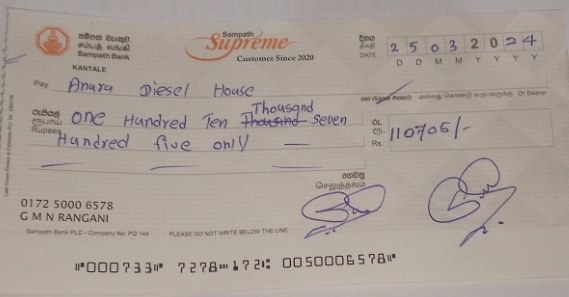 සම්පත් බැංකුව
சம்பத் வங்கி
Sampath Bank
KANTALE
Sampath
Supreme
Customer Since 2020
දිනය
திகதி
DATE
2 5 0 3 2 0 2 4
D D M M Y Y Y Y
Pay Anura Diesel House
Or Bearer
Thousand
රුපියල්
ரூபாய்
Rupees
One Hundred Ten Thousand Seven
Hundred five only —
රු.
ரூ.
Rs.
110705/-
0172 5000 6578
G M N RANGANI
Sampath Bank PLC - Company No. PQ 144
PLEASE DO NOT WRITE BELOW THE LINE
⑈000733⑈ 7278⑉172⑆ 0050006578⑈